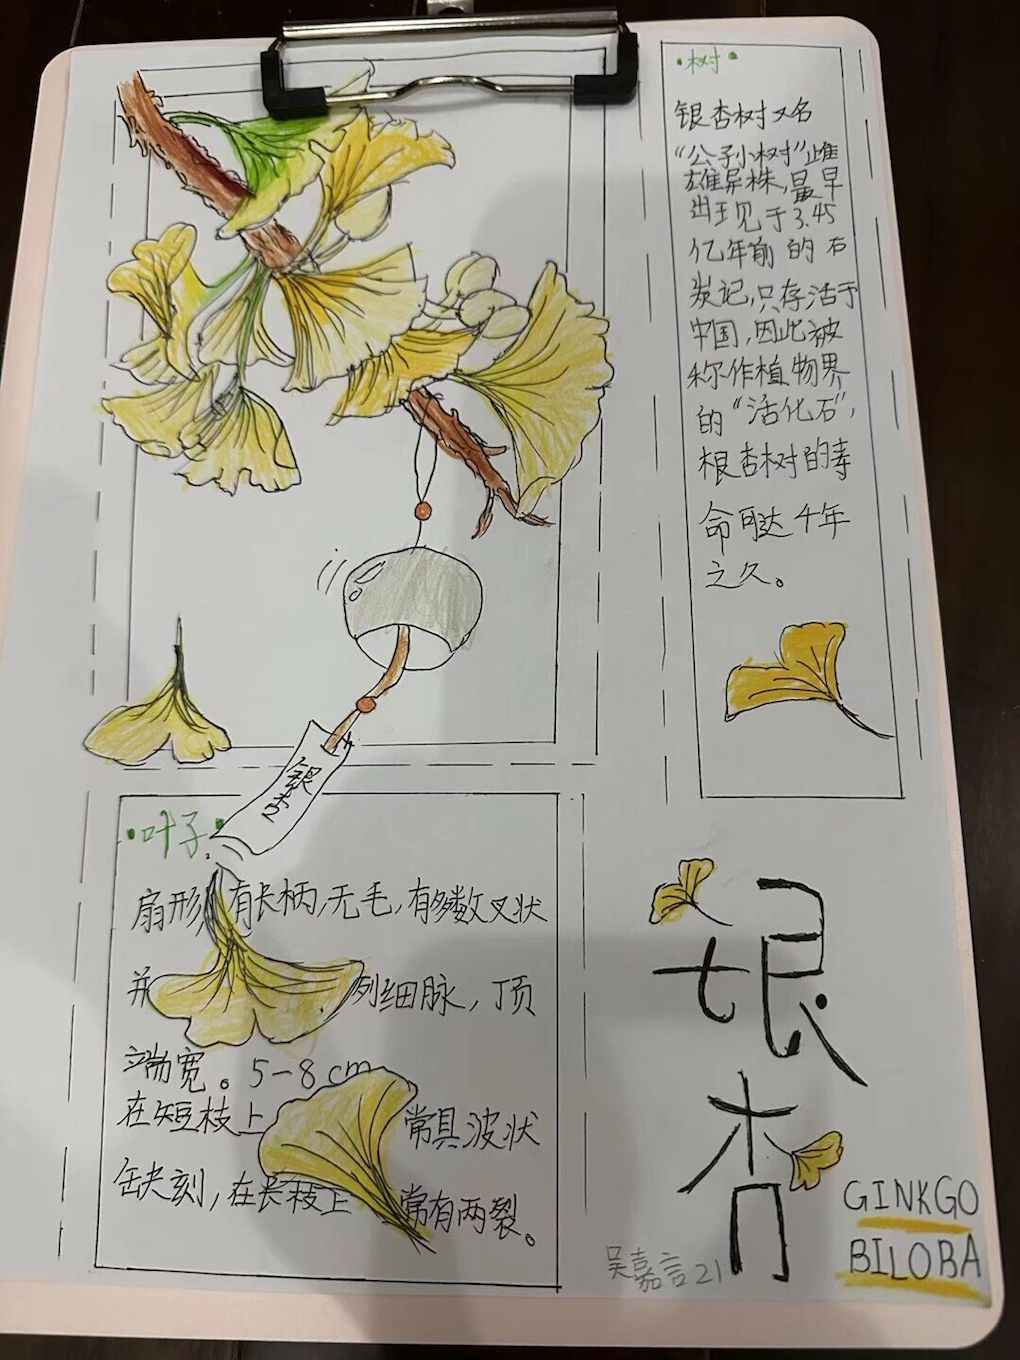 树
银杏树又名
“公孙树”雌
雄异株,最早
出现于3.45
亿年前的石
炭记,只存活于
中国,因此被
称作植物界
的“活化石”,
根杏树的寿
命可达千年
之久。
银杏
叶子
扇形,有长柄,无毛,有多数叉状
并列细脉,顶
端宽。5-8cm
在短枝上常具波状
缺刻,在长枝上常有两裂。
银杏
GINKGO
BILOBA
吴嘉言21